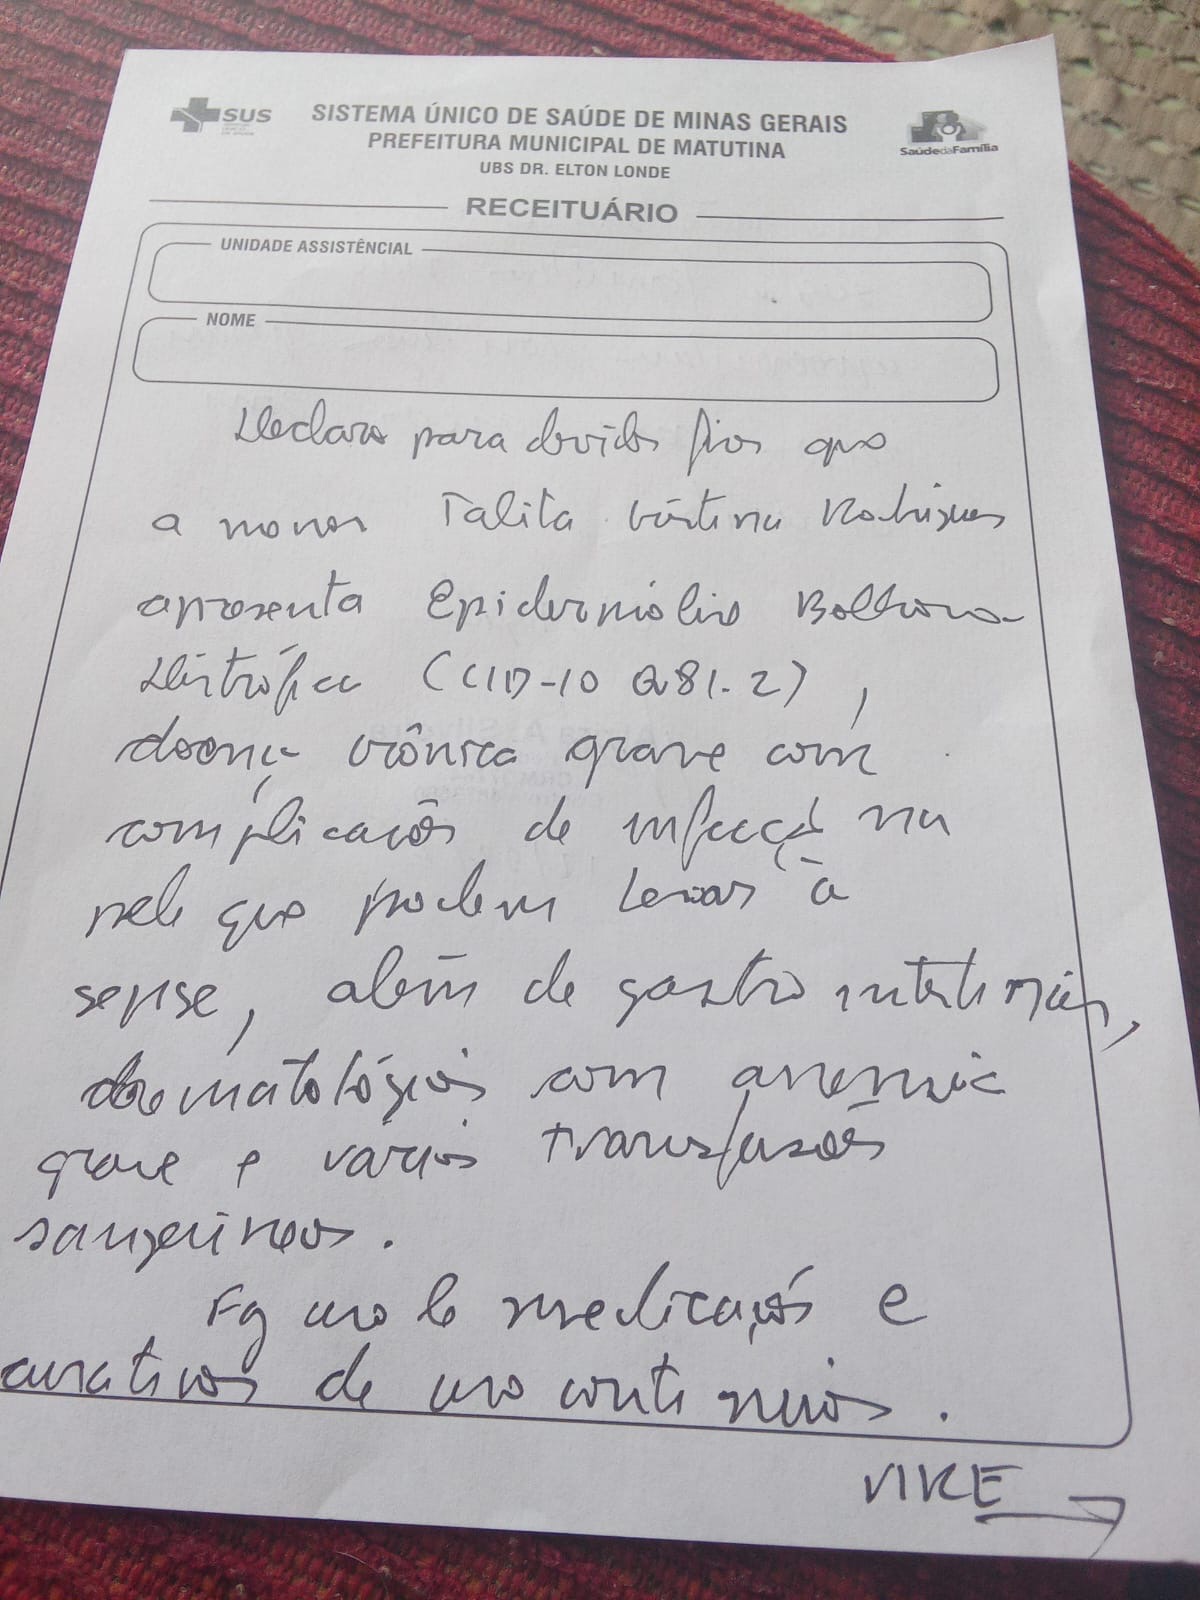 SUS
SISTEMA ÚNICO DE SAÚDE DE MINAS GERAIS
PREFEITURA MUNICIPAL DE MATUTINA
UBS DR. ELTON LONDE
Saúde da Família
RECEITUÁRIO
UNIDADE ASSISTÊNCIAL
NOME
Declaro para devidos fins que
a menor Talita Cristina Rodrigues
apresenta Epidermólise Bolhosa
Distrófica (CID-10 Q81.2),
doença crônica grave com
complicações de infecção na
pele que podem levar à
sepse, além de gastrointestinais,
dermatológicos com anemia
grave e várias transfusões
sanguíneas.
Faz uso de medicações e
curativos de uso contínuos.
VIRE